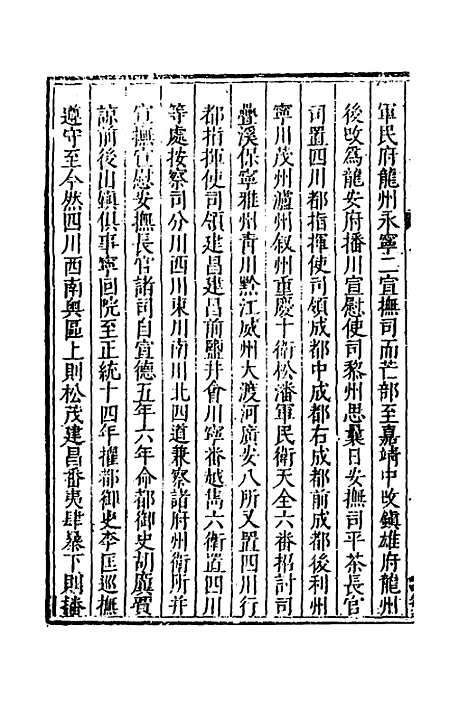 軍民府龍州永寧二宣撫司而芒部至嘉靖中改鎮雄府龍州
後改爲龍安府播川宣慰使司黎州思曩日安撫司平茶長官
司置四川都指揮使司領成都中成都右成都前成都後利州
寧川茂州瀘州叙州重慶十衛松潘軍民衛天全六番招討司
疊溪保寧雅州青川黔江威州大渡河廣安八所又置四川行
都指揮使司領建昌建昌前鹽井會川寧番越嶲六衛置四川
等處按察司分川西川東川南川北四道兼察諸府州衛所并
宣撫宣慰安撫長官諸司自宣德五年六年命都御史胡廙賈
諒前後出鎮俱事寧囘院至正統十四年擢都御史李匡巡撫
遵守至今然四川西南輿區上則松茂建昌番夷肆暴下則播